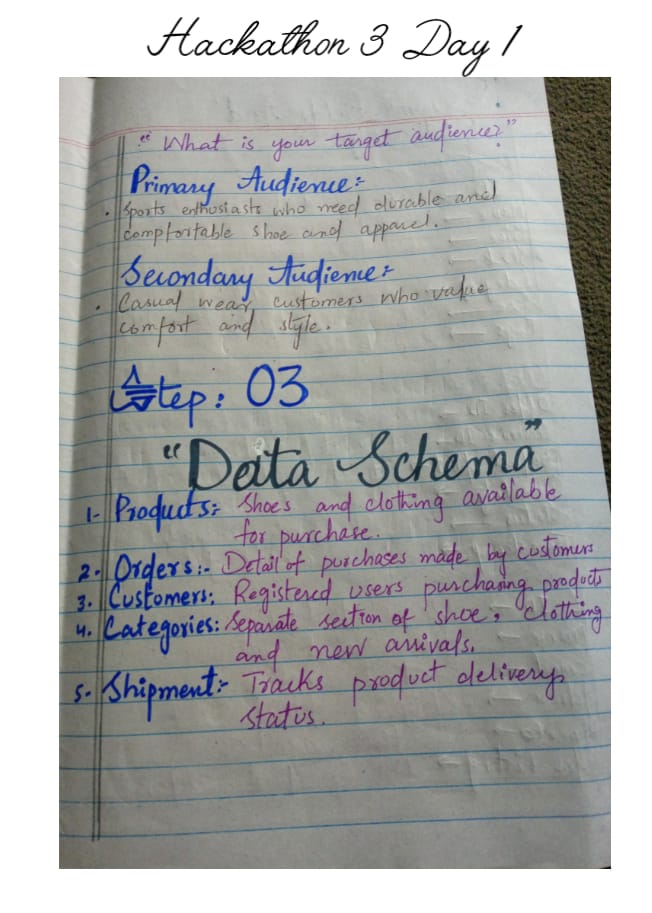 Hackathon 3 Day 1
"What is your target audience?"
Primary Audience:-
. Sports enthusiasts who need durable and
comfortable shoe and apparel.
Secondary Audience:-
. Casual wear customers who value
comfort and style.
Step: 03
"Data Schema"
1- Products:- Shoes and clothing available
for purchase.
2. Orders:- Detail of purchases made by customers
3. Customers: Registered users purchasing products
4. Categories: Separate section of shoe, clothing
and new arrivals.
5. Shipment:- Tracks product delivery
status.